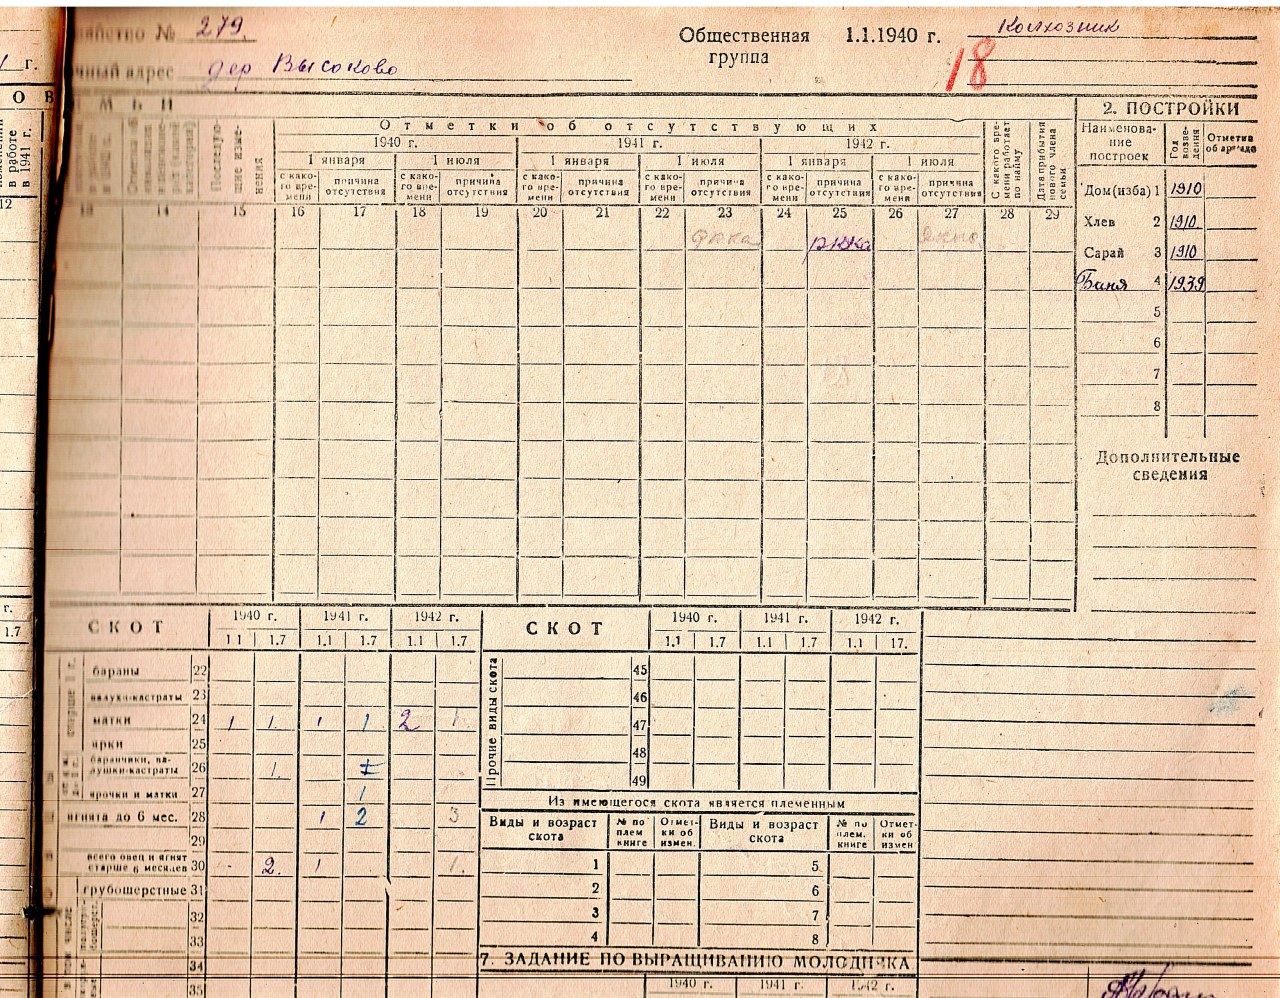 № 279.
Общественная группа 1.1.1940 г. Колхозник
адрес дер Высоково
18
г.
О В
в работе в 1941 г.
12
2. ПОСТРОЙКИ
Отметки об отсутствующих
1940 г. 1941 г. 1942 г.
1 января 1 июля 1 января 1 июля 1 января 1 июля
с како-го вре-мени причина отсутствия с како-го вре-мени причина отсутствия с како-го вре-мени причина отсутствия с како-го вре-мени причина отсутствия с како-го вре-мени причина отсутствия с како-го вре-мени причина отсутствия
Последую-щие изме-нения
С какого вре-мени работает по найму
Дата прибытия нового члена семьи
13 14 15 16 17 18 19 20 21 22 23 24 25 26 27 28 29
ркка
Наименова-ние построек Год возве-дения Отметка
Дом(изба) 1 1910
Хлев 2 1910.
Сарай 3 1910
Баня 4 1939
5
6
7
8
Дополнительные сведения
г.
1.7
СКОТ 1940 г. 1941 г. 1942 г.
1.1 1.7 1.1 1.7 1.1 1.7
бараны 22
валухи-кастраты 23
матки 24 1 1. 1 1 2 1
ярки 25
баранчики, ва-лушки-кастраты 26 1.
ярочки и матки 27 1
ягнята до 6 мес. 28 1 2 3
29
всего овец и ягнят старше 6 месяцев 30 - 2. 1 1.
грубошерстные 31
32
33
34
35
СКОТ 1940 г. 1941 г. 1942 г.
1.1 1.7 1.1 1.7 1.1 17.
Прочие виды скота
45
46
47
48
49
Из имеющегося скота является племенным
Виды и возраст скота № по плем книге Отмет-ки об измен. Виды и возраст скота № по плем. книге Отмет-ки об измен
1 5
2 6
3 7
4 8
7. ЗАДАНИЕ ПО ВЫРАЩИВАНИЮ МОЛОДНЯКА
1940 г. 1941 г. 1942 г.